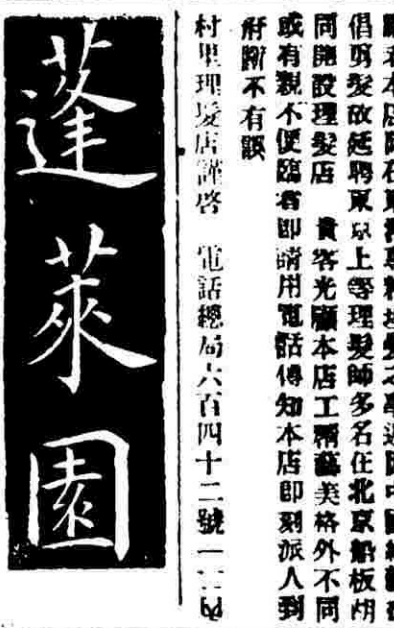 者本店在東洋專精理髮之學近因中國
倡剪髮故延聘東京上等理髮師多名住北京船板胡
同開設理髮店 貴客光顧本店工精藝美格外不同
或有親不便臨者即請用電話傳知本店即刻派人到
府斷不有誤
村里理髮店謹啓 電話總局六百四十二號
蓬萊園